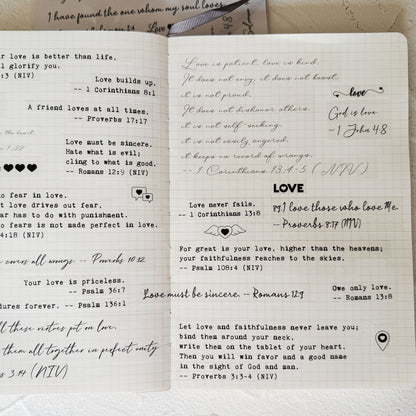 I have found the one whom my soul loves.
3:4
Solomon
ur love is better than life,
l glorify you.
:3 (NIV)
Love builds up.
-- 1 Corinthians 8:1
A friend loves at all times.
-- Proverbs 17:17
the heart.
Love must be sincere.
Hate what is evil;
cling to what is good.
-- Romans 12:9 (NIV)
no fear in love.
t love drives out fear,
ar has to do with punishment.
o fears is not made perfect in love.
4:18 (NIV)
covers all wrongs. -- Proverbs 10:12
Your love is priceless.
-- Psalm 36:7
dures forever. -- Psalm 136:1
ll these virtues put on love,
them all together in perfect unity
s 3:14 (NIV)
Love is patient, love is kind.
It does not envy, it does not boast,
it is not proud.
It does not dishonor others,
it is not self-seeking,
it is not easily angered,
it keeps no record of wrongs.
-- 1 Corinthians 13:4-5 (NIV)
love
God is love
-- 1 John 4:8
LOVE
Love never fails.
-- 1 Corinthians 13:8
I love those who love Me.
-- Proverbs 8:17 (NIV)
For great is your love, higher than the heavens;
your faithfulness reaches to the skies.
-- Psalm 108:4 (NIV)
Love must be sincere. -- Romans 12:9
Owe only love.
-- Romans 13:8
Let love and faithfulness never leave you;
bind them around your neck,
write them on the tablet of your heart.
Then you will win favor and a good name
in the sight of God and man.
-- Proverbs 3:3-4 (NIV)